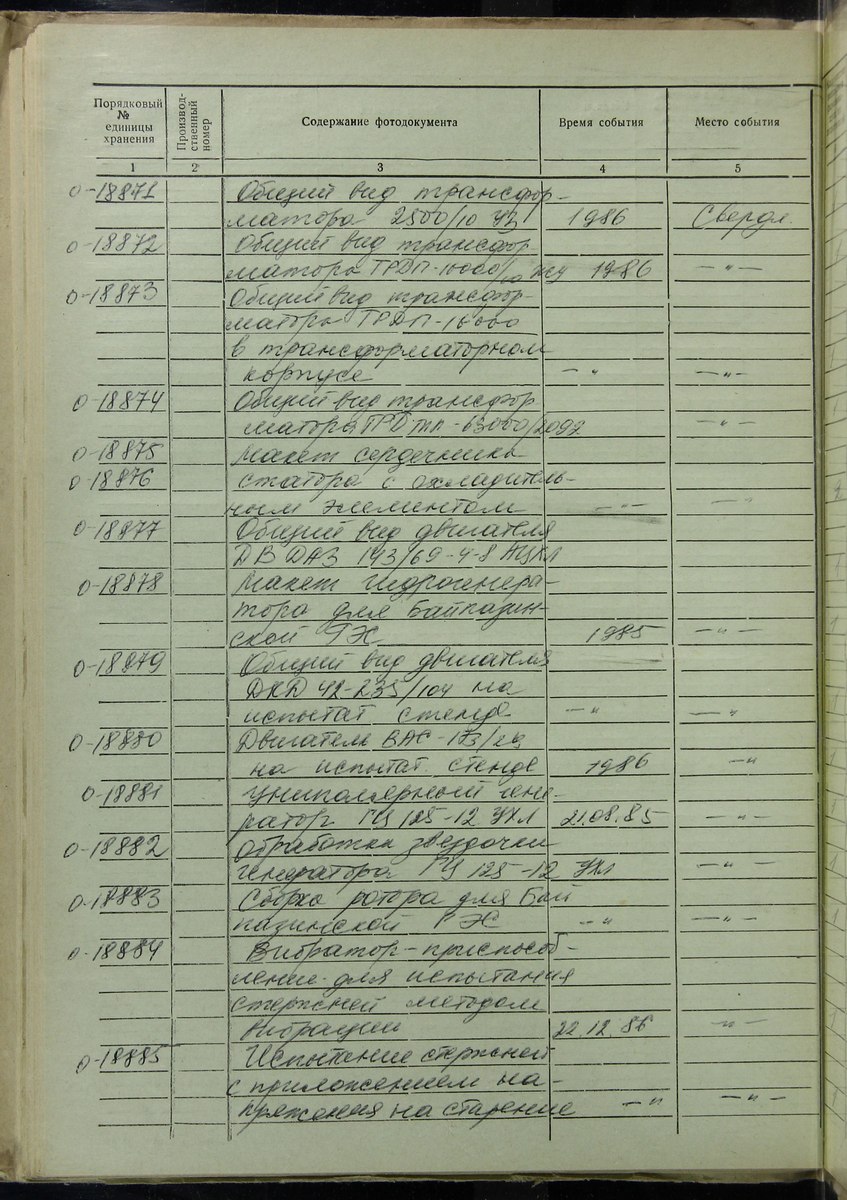 Порядковый № единицы хранения
Производственный номер
Содержание фотодокумента
Время события
Место события
1 2 3 4 5
0-18871 Общий вид трансфор-
матора 2500/10 УЗ 1986 Свердл.
0-18872 Общий вид трансфор-
матора ТРДП-10000/10 ЖУ 1986 —"—
0-18873 Общий вид трансфор-
матора ТРДП-16000
в трансформаторном
корпусе —" —"—
0-18874 Общий вид трансфор
матора —"—
0-18875 Макет сердечника
0-18876 статора с охладитель-
ным элементом —"— —"—
0-18877 Общий вид двигателя
ДВДАЗ 173/69-4-8
0-18878 Макет гидрогенера-
тора для Байпазин-
ской ГЭС 1985 —"—
0-18879 Общий вид двигателя
на
испытат стенде —" —"—
0-18880 Двигатель ВАС-173/29
на испытат. стенде 1986 —"
0-18881 Униполярный гене-
ратор ГЦ 125-12 УХЛ 21.08.85 —"—
0-18882 Обработка звездочки
генератора ГЦ 125-12 УХЛ —"—
0-18883 Сборка ротора для Бай
пазинской ГЭС —" —"—
0-18884 Вибратор-приспособ-
ление для испытания
стержней методом
вибрации 22.12.86 —"—
0-18885 Испытание стержней
с приложением на-
пряжения на старение —" —"—